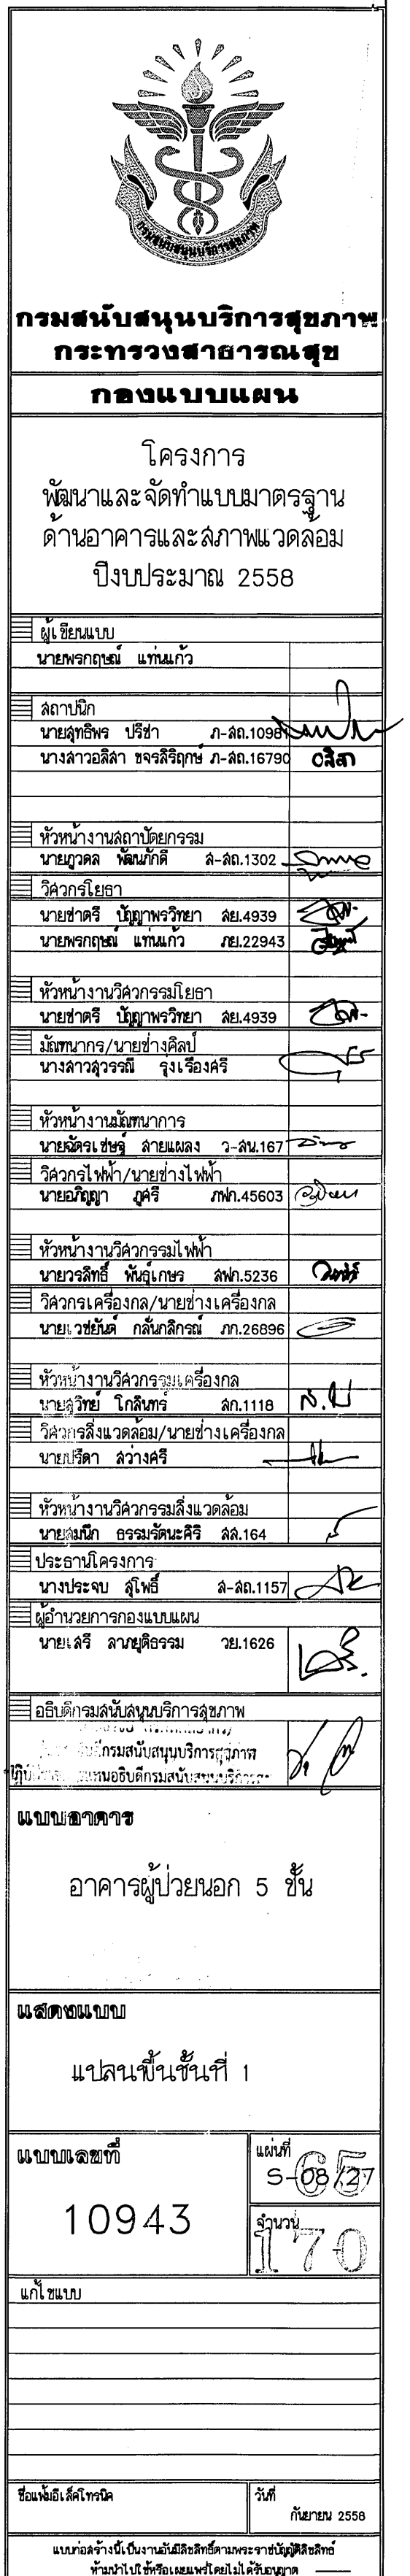 กรมสนับสนุนบริการสุขภาพ
กรมสนับสนุนบริการสุขภาพ
กระทรวงสาธารณสุข
กองแบบแผน
โครงการ
พัฒนาและจัดทำแบบมาตรฐาน
ด้านอาคารและสภาพแวดล้อม
ปีงบประมาณ 2558
ผู้เขียนแบบ
นายพรกฤษณ์ แท่นแก้ว
สถาปนิก
นายสุทธิพร ปรีชา ภ-สถ.10981
นางสาวอลิสา ขจรสิริฤกษ์ ภ-สถ.16790 อลิสา
หัวหน้างานสถาปัตยกรรม
นายภูวดล พัฒนภักดี ส-สถ.1302
วิศวกรโยธา
นายชาตรี ปัญญาพรวิทยา สย.4939
นายพรกฤษณ์ แท่นแก้ว ภย.22943
หัวหน้างานวิศวกรรมโยธา
นายชาตรี ปัญญาพรวิทยา สย.4939
มัณฑนากร/นายช่างศิลป์
นางสาวสุวรรณี รุ่งเรืองศรี
หัวหน้างานมัณฑนาการ
นายฉัตรเชษฐ์ สายแผลง ว-สน.167
วิศวกรไฟฟ้า/นายช่างไฟฟ้า
นายอภิญญา ภูศรี ภฟก.45603
หัวหน้างานวิศวกรรมไฟฟ้า
นายวรสิทธิ์ พันธุ์เกษร สฟก.5236
วิศวกรเครื่องกล/นายช่างเครื่องกล
นายเวชยันต์ กลั่นกลิกรณ์ ภก.26896
หัวหน้างานวิศวกรรมเครื่องกล
นายสุวิทย์ โกสินทร์ สก.1118
วิศวกรสิ่งแวดล้อม/นายช่างเครื่องกล
นายปรีดา สว่างศรี
หัวหน้างานวิศวกรรมสิ่งแวดล้อม
นายสมนึก ธรรมรัตนะศิริ สส.164
ประธานโครงการ
นางประจบ สุโพธิ์ ส-สถ.1157
ผู้อำนวยการกองแบบแผน
นายเสรี ลาภยุติธรรม วย.1626
อธิบดีกรมสนับสนุนบริการสุขภาพ
กรมสนับสนุนบริการสุขภาพ
แทนอธิบดีกรมสนับสนุนบริการ
แบบอาคาร
อาคารผู้ป่วยนอก 5 ชั้น
แสดงแบบ
แปลนพื้นชั้นที่ 1
แบบเลขที่
10943
แผ่นที่
65
S-08/27
จำนวน
170
แก้ไขแบบ
ชื่อแฟ้มอิเล็คโทรนิค
วันที่
กันยายน 2558
แบบก่อสร้างนี้เป็นงานอันมีลิขสิทธิ์ตามพระราชบัญญัติลิขสิทธิ์
ห้ามนำไปใช้หรือเผยแพร่โดยไม่ได้รับอนุญาต